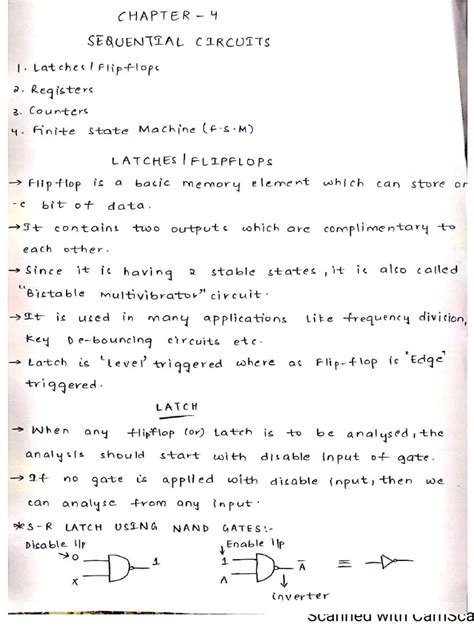 CHAPTER - 4
SEQUENTIAL CIRCUITS
1. Latches / Flipflops
2. Registers
3. Counters
4. Finite State Machine (F.S.M)
LATCHES / FLIPFLOPS
→ Flipflop is a basic memory element which can store or
-c bit of data.
→ It contains two outputs which are complimentary to
each other.
→ Since it is having 2 stable states, it is also called
"Bistable multivibrator" circuit.
→ It is used in many applications like frequency division,
Key De-bouncing circuits etc.
→ Latch is 'Level' triggered where as Flip-flop is 'Edge'
triggered.
LATCH
→ When any flipflop (or) Latch is to be analysed, the
analysis should start with disable Input of gate.
→ If no gate is applied with disable input, then we
can analyse from any input.
* S-R LATCH USING NAND GATES:-
Disable I/p
Enable I/p
0 1
X
1 A̅ ≡
A
inverter
Scanned with CamSca